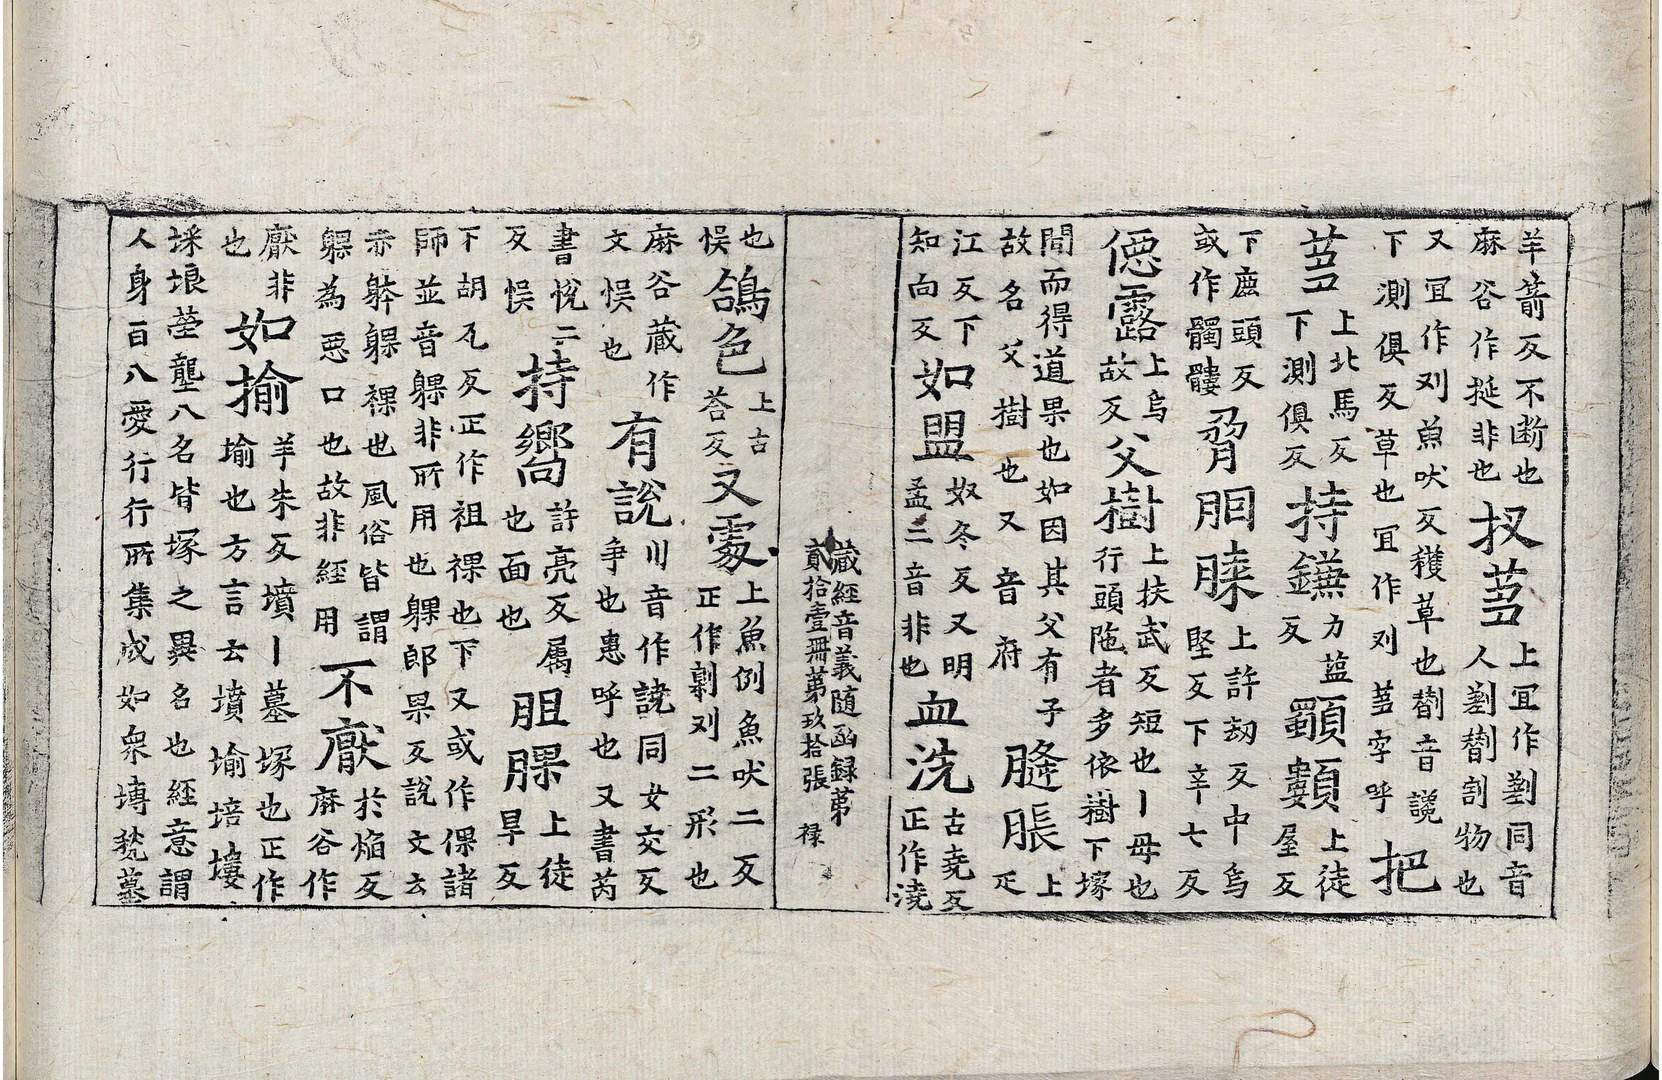 羊莭反不断也
麻谷作挻非也
扠茤
上冝作剗同音
人剗㔍割物也
又冝作刈魚吠反穫草也㔍音讒
下測俱反草也冝作刈茤字呼
把
茤
上北馬反
下測俱反
持鎌
力㿉
反
顕䫫
上徒
屋反
下鹿頭反
或作髑髏
脟胭膝
上許刼反中烏
堅反下辛七反
僫露
上烏
故反
父樹
上扶武反短也丨母也
行頭陁者多依樹下塚
間而得道果也如因其父有子
故名父樹也又音府
膖脹
上
疋
江反下
知向反
如盟
奴冬反又明
孟二音非也
血洗
古尭反
正作澆
藏經音義随函録苐
貳拾壹冊苐玖拾張
禄
也
悮
鴿色
上古
荅反
又䨥
上魚例魚吠二反
正作劓刈二形也
麻谷蔵作
文悮也
有說
川音作譊同女交反
争也恚呼也又書芮
書恱二
反悮
持嚮
許亮反属
也面也
胆腂
上徒
旱反
下胡瓦反正作袒裸也下又或作倮諸
師並音躶非所用也躶郎果反說文云
赤躰躶裸也風俗皆謂
躶為惡口也故非經用
不厭
於焔反
麻谷作
厭非
也
如揄
羊朱反墳丨墓塚也正作
堬也方言云墳堬培塿
埰埌塋壟八名皆塚之異名也經意謂
人身百八愛行行所集成如衆塼甃墓